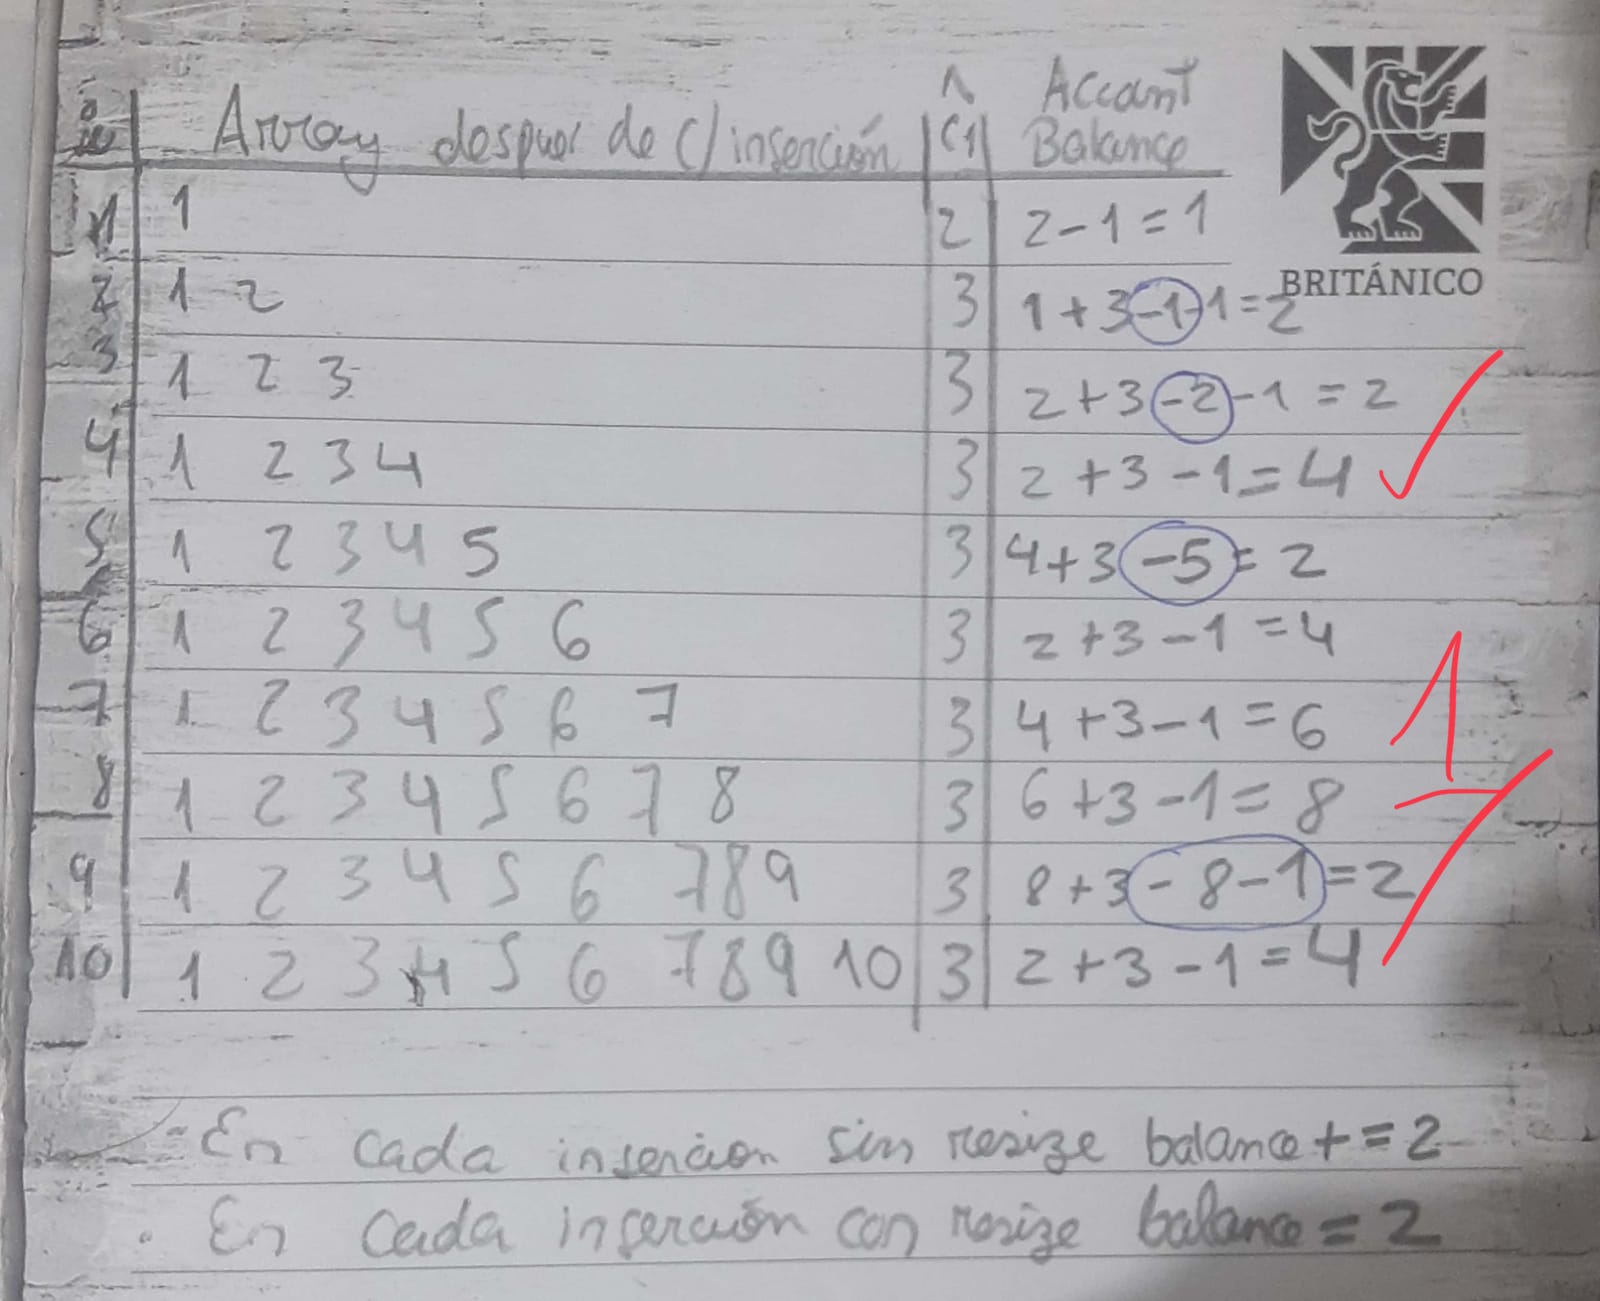 i Array despues de c/ inserción ĉi Account Balance
BRITÁNICO
1 1 2 2-1=1
2 1 2 3 1+3-1-1=2
3 1 2 3 3 2+3-2-1=2
4 1 2 3 4 3 2+3-1=4 ✓
5 1 2 3 4 5 3 4+3-5=2
6 1 2 3 4 5 6 3 2+3-1=4
7 1 2 3 4 5 6 7 3 4+3-1=6
8 1 2 3 4 5 6 7 8 3 6+3-1=8
9 1 2 3 4 5 6 7 8 9 3 8+3-8-1=2
10 1 2 3 4 5 6 7 8 9 10 3 2+3-1=4
1
- En cada insercion sin resize balance+=2
· En cada inserción con resize balance=2